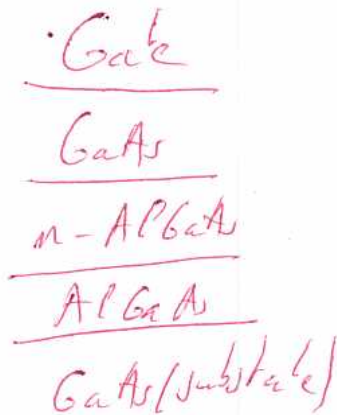 Gate
GaAs
n-AlGaAs
AlGaAs
GaAs (substrate)